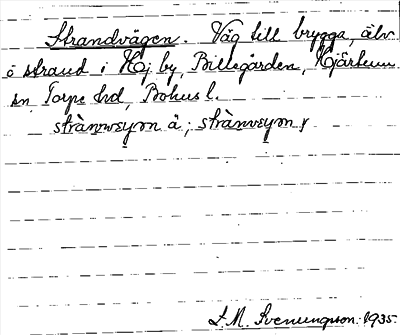 Strandvägen. Väg till brygga, älv
o strand i Hj by, Billegården, Hjärtum
sn Torpe hd, Bohus l.
strànvæym ä; strànvæym
S.M. Svenungsson. 1935.